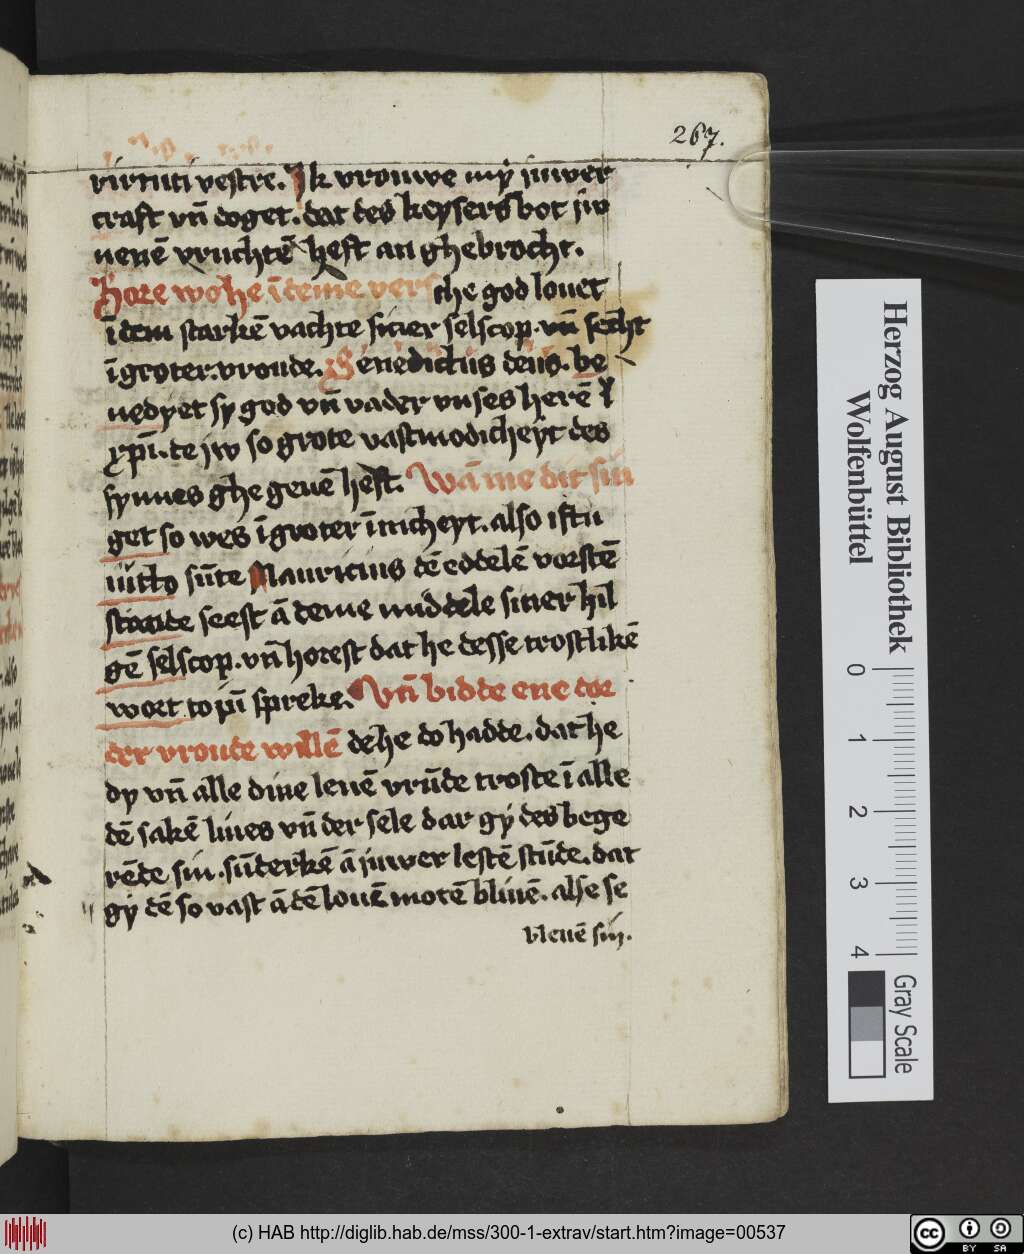 267.
virtuti vestre. Ik vrouwe my juwer
craft vn̄ doget. dat des keysers bot jw
nenē vruchtē heft an ghebrocht.
Hore wo he ī deme vers the god louet
ī dem starkē vachte siner selscop. vn̄ secht
ī groter vroude. Benedictus deus. be
nedyet sy god vn̄ vader vnses herē
xpī. te jw so grote vastmodicheyt des
synnes ghe geuē heft. Wā me dit sin
get so wes ī groter īnicheyt. also iftu
sūte Mauricius dē eddelē vorstē
stande seest ā deme middele siner hil
gē selscop. vn̄ horest dat he desse trostlikē
wort to jū spreke. Vn̄ bidde ene dor
der vroude willē de he do hadde. dat he
dy vn̄ alle dine leuē vrūde troste ī alle
dē sakē liues vn̄ der sele dar gy des bege
rēde sin. sūderkē ā juwer lestē stūde. dat
gy dē so vast ā dē louē motē bliuē. alse se
bleuē sin.
Herzog August Bibliothek
Wolfenbüttel
0 1 2 3 4
Gray Scale
(c) HAB http://diglib.hab.de/mss/300-1-extrav/start.htm?image=00537
cc BY SA